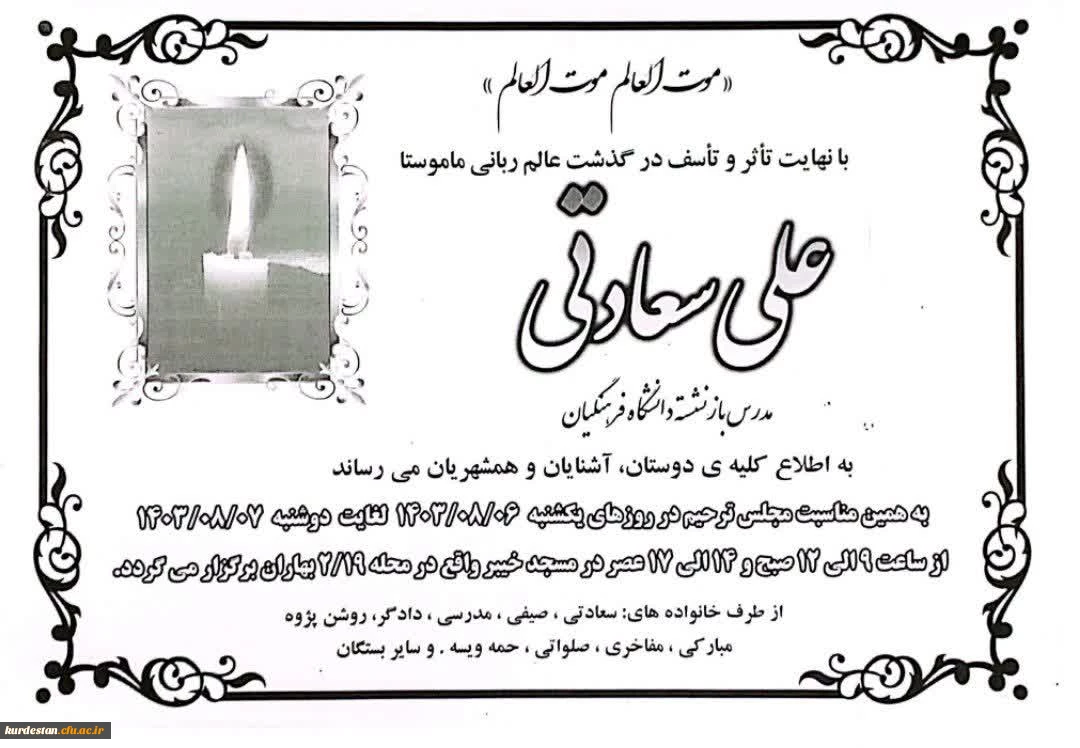 «موت العالم موت العالم»
با نهایت تأثر و تأسف در گذشت عالم ربانی ماموستا
علی سعادتی
مدرس بازنشسته دانشگاه فرهنگیان
به اطلاع کلیه ی دوستان، آشنایان و همشهریان می رساند
به همین مناسبت مجلس ترحیم در روزهای یکشنبه ۱۴۰۳/۰۸/۰۶ لغایت دوشنبه ۱۴۰۳/۰۸/۰۷
از ساعت ۹ الی ۱۲ صبح و ۱۴ الی ۱۷ عصر در مسجد خیبر واقع در محله ۲/۱۹ بهاران برگزار می گردد.
از طرف خانواده های: سعادتی ، صیفی ، مدرسی ، دادگر، روشن پژوه
مبارکی ، مفاخری ، صلواتی ، حمه ویسه . و سایر بستگان
kurdestan.cfu.ac.ir